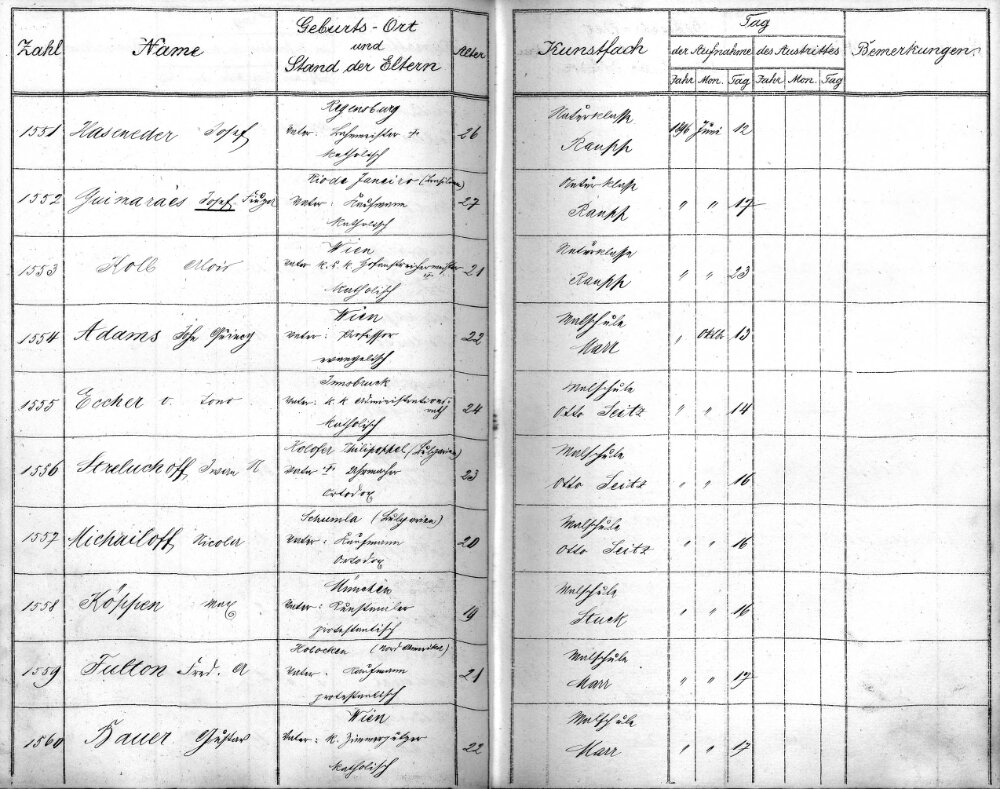 Zahl Name Geburts-Ort und Stand der Eltern Alter Kunstfach Tag Bemerkungen
der Aufnahme des Austrittes
Jahr Mon. Tag Jahr Mon. Tag
Regensburg Naturklasse
1551 Haseneder Josef Vater: † 26 Raupp 1896 Juni 12
katholisch
Rio de Janeiro (Brasilien) Naturklasse
1552 Guimarães Josef Vater: Kaufmann 27 Raupp " " 17
katholisch
Wien Naturklasse
1553 Kolb Alois Vater k. u. k. 21 Raupp " " 23
katholisch
Wien Malschule
1554 Adams John Quincy Vater: Professor 22 Marr " Oktbr 13
evangelisch
Innsbruck Malschule
1555 Eccher v. Vater: k. k. Administrations-rath 24 Otto Seitz " " 14
katholisch
Philippopel (Bulgarien) Malschule
1556 Streluchoff, Iwan N Vater † Uhrmacher 23 Otto Seitz " " 16
Ortodox
Schumla (Bulgarien) Malschule
1557 Michailoff Nicola Vater: Kaufmann 20 Otto Seitz " " 16
Ortodox
München Malschule
1558 Köppen Max Vater: Kunstmaler 19 Stuck " " 16
protestantisch
Hobocken (Nord Amerika) Malschule
1559 Fulton Fred. A Vater: Kaufmann 21 Marr " " 17
protestantisch
Wien Malschule
1560 Bauer Gustav Vater: k. 22 Marr " " 17
katholisch